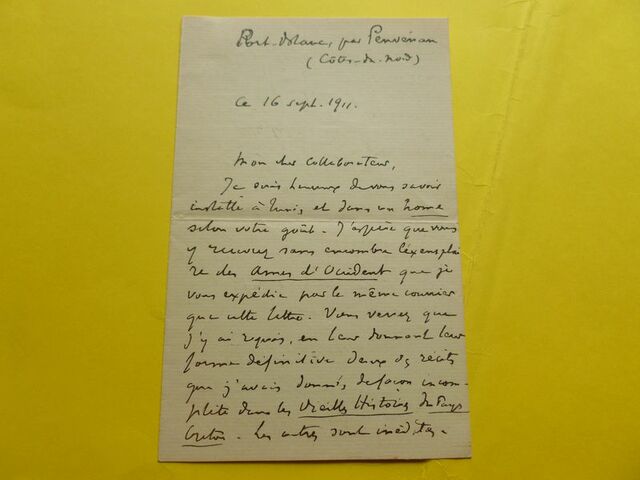 Port-Blanc, par Penvénan
(Côtes-du-nord)
Ce 16 sept. 1911.
Mon cher collaborateur,
Je suis heureux de vous savoir
installé à Tunis, et dans un home
selon votre goût. J'espère que vous
y recevrez sans encombre l'exemplai
re des Ames d'Occident que je
vous expédie par le même courrier
que cette lettre. Vous verrez que
j'y ai repris, en leur donnant leur
forme définitive deux des récits
que j'avais donnés, de façon incom-
plète dans les Vieilles Histoires du Pays
Breton. Les autres sont inédites.